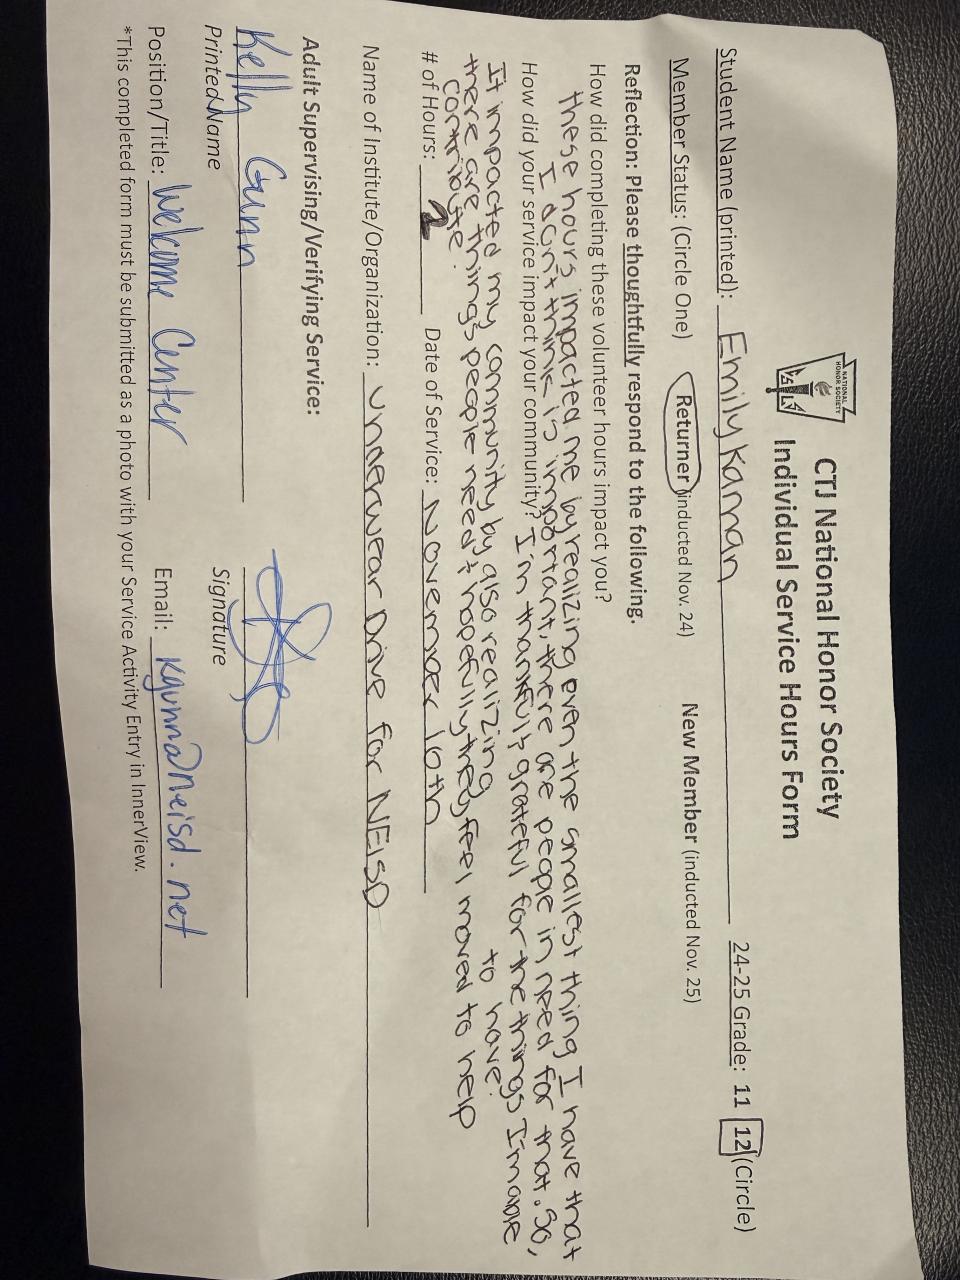 NATIONAL
HONOR SOCIETY
CTJ National Honor Society
Individual Service Hours Form
Student Name (printted): Emily Kannan 24-25 Grade: 11 12 (Circle)
Member Status: (Circle One) Returner (inducted Nov. 24) New Member (inducted Nov. 25)
Reflection: Please thoughtfully respond to the following.
How did completing these volunteer hours impact you?
these hours impacted me by realizing even the smallest thing I have that
I don't think is important, there are people in need for that. So,
How did your service impact your community? I'm thankful & grateful for the things I'm able
to have.
It impacted my community by also realizing
there are things people need & hopefully they feel moved to help
contribute.
# of Hours: 2 Date of Service: November 10th
Name of Institute/Organization: Underwear Drive for NEISD
Adult Supervising/Verifying Service:
Kelly Gunn
Printed Name Signature
Position/Title: Welcome Center Email: kgunn@neisd.net
*This completed form must be submitted as a photo with your Service Activity Entry in InnerView.